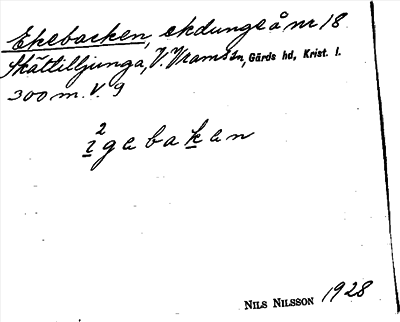 Ekebacken, ekdunge å nr 18
Skättilljunga, V. Vrams sn, Gärds hd, Krist. l.
300 m. V. 9
2
i g e b a k e n
NILS NILSSON 1928